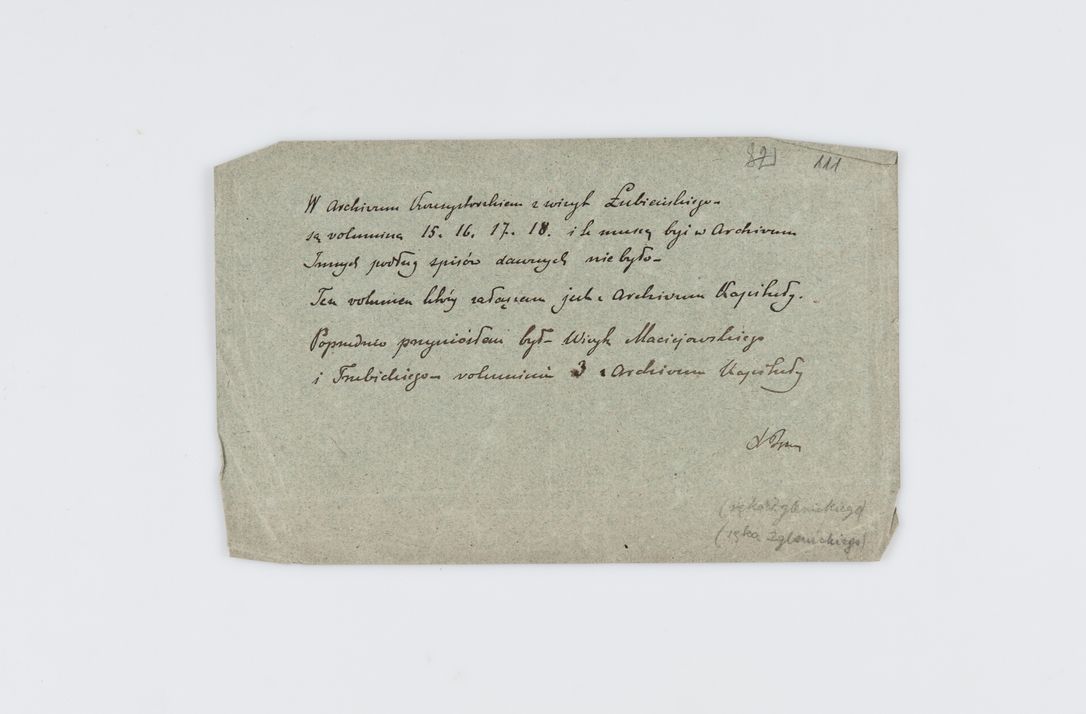 821 111
W Archivum Konsystorskiem z wizyt Łubieńskiego
są volumina 15. 16. 17. 18. i te muszą być w Archivum
Innych podług spisów dawnych nie było
Ten volumen który załączam jest z Archivum Kapituły.
Poprzednio przyniósłem był Wizyt Maciejowskiego
i Trzebickiego volumina 3 z Archivum Kapituły
(ręka Zglenickiego)
(ręka Zglenickiego)